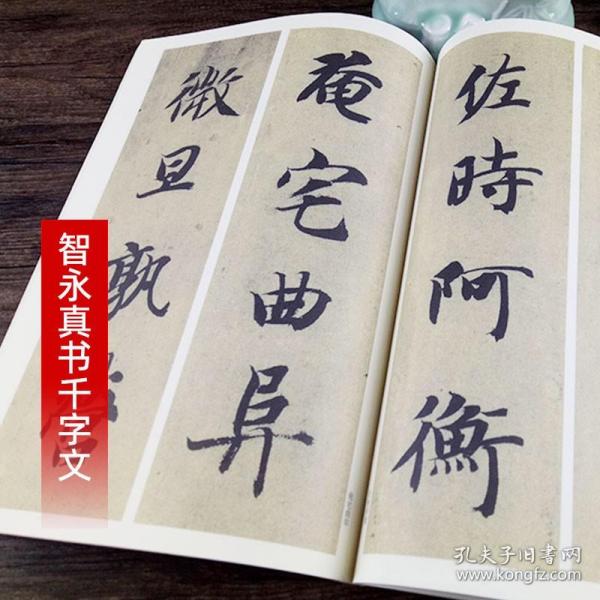 佐時阿衡
奄宅曲阜
微旦孰營
智永真书千字文
孔夫子旧书网
www.kongfz.com